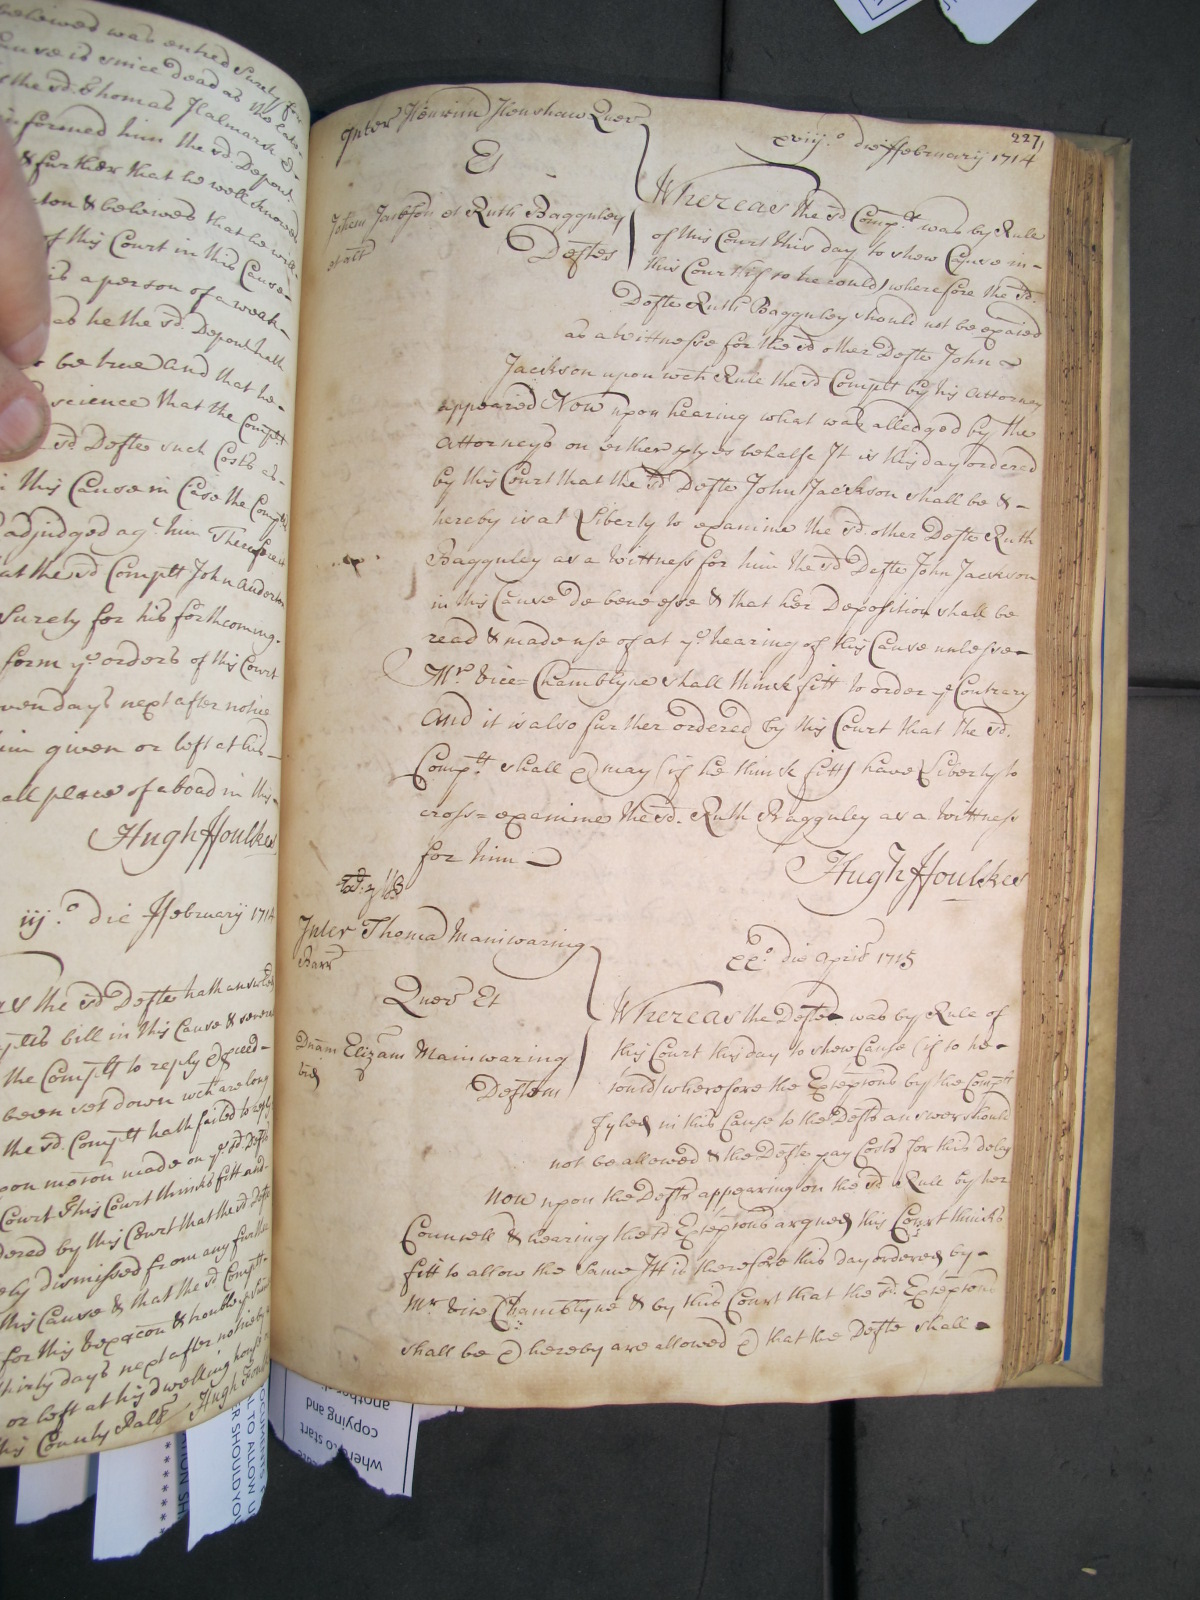 beleived was entred Surety for
Cause is since dead as the
the sd. Thomas Hallmarke
informed him the sd. Depont.
& further that he well knowes
& beleives that he will
of this Court in this Cause
is a person of a weak
as he the sd. Depont hath
to be true And that he
science that the Compt
sd. Defte such Costs as
in this Cause in Case the Compt
adjudged agt. him Therefore
at the sd Complt John Anderton
Surety for his forthcoming
form ye orders of this Court
even days next after notice
him given or left at his
all place of aboad in this
Hugh Ffoulkes
iij.o die Ffebruarij 1714
as the sd Defte hath answered
bill in this Cause & severall
the Complt to reply
been set down wch are long
the sd. Complt hath failed to reply
upon motion made on ye sd. Defts
Court This Court thinks fitt and
dered by this Court that the sd Defte
ely dismissed from any further
this Cause & that the sd Complt
for this vexacon & trouble
thirty days next after notice
or left at his dwelling house
this County Palt Hugh Foulkes
227
Inter Henricum Henshaw Quer
xviij.o die Ffebruarij 1714
Et
Johem Jackson et Ruth Bagguley
et alt
Deftes
Whereas the sd Compt. was by Rule
of this Court this day to show Cause in-
this Court (if so he could) wherefore the sd.
Defte Ruth Bagguley should not be exaied
as a Wittnesse for the sd other Defte John
Jackson upon wch Rule the sd Complt by his Attorney
appeared Now upon hearing what was alledged by the
Attorneys on either ptyes behalfe It is this day ordered
by this Court that the sd Defte John Jackson shall be & -
hereby is at Liberty to examine the sd. other Defte Ruth
Bagguley as a Wittness for him the sd Defte John Jackson
in this Cause De bene esse & that her Deposition shall be
read & made use of at ye. hearing of this Cause unlesse
Mr. Vice= Chamblyne shall think fitt to order ye Contrary
And it is also further ordered by this Court that the sd.
Complt. shall & may (if he think fitt) have Liberty to
cross= examine the sd. Ruth Bagguley as a Wittness
for him
Hugh Ffoulkes
Inter Thoma Maniwaring
Barr
xx.o die Aprilis 1715
Quer Et
Dnam Elizam Mainwaring
vid
Deftem
Whereas the Defte was by Rule of
this Court this day to show Cause (if so he
could) wherefore the Exceptons by the Complt
fyled in this Cause to the Defts answer should
not be allowed & the Defte pay Costs for this delay
Now upon the Defts appearing on the sd Rule by her
Councell & hearing the sd Exceptons argued this Court thinks
fitt to allow the same Itt is therefore this day ordered by -
Mr Vice Chamblyne & by this Court that the sd. Exceptons
shall be & hereby are allowed & that the Defte shall -
where to start
copying and
TO ALLOW
SHOULD YOU